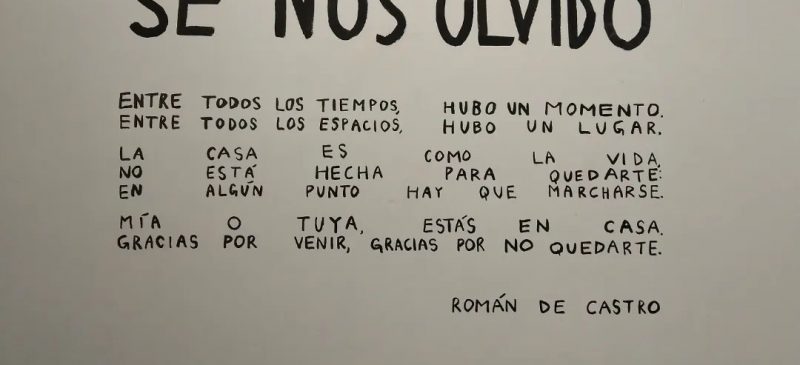 SE NOS OLVIDÓ
ENTRE TODOS LOS TIEMPOS, HUBO UN MOMENTO.
ENTRE TODOS LOS ESPACIOS, HUBO UN LUGAR.
LA CASA ES COMO LA VIDA,
NO ESTÁ HECHA PARA QUEDARTE:
EN ALGÚN PUNTO HAY QUE MARCHARSE.
MÍA O TUYA, ESTÁS EN CASA.
GRACIAS POR VENIR, GRACIAS POR NO QUEDARTE.
ROMÁN DE CASTRO